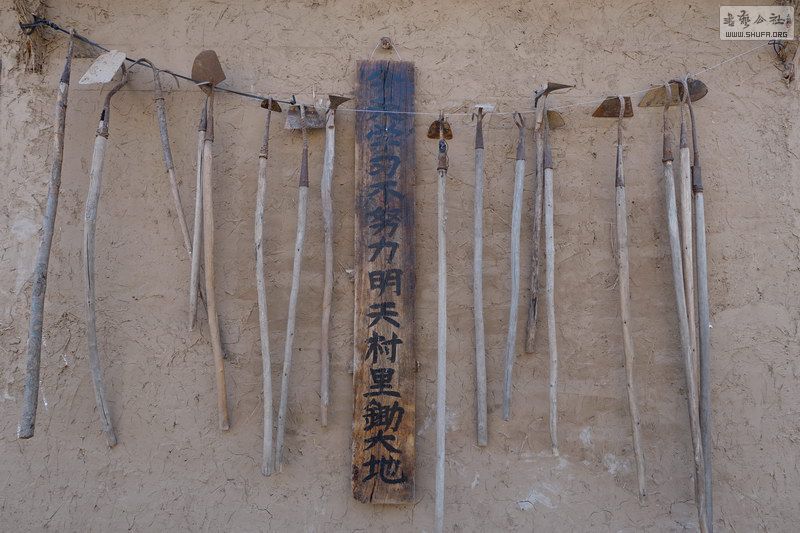 習不努力明天村里鋤大地
書藝公社
WWW.SHUFA.ORG